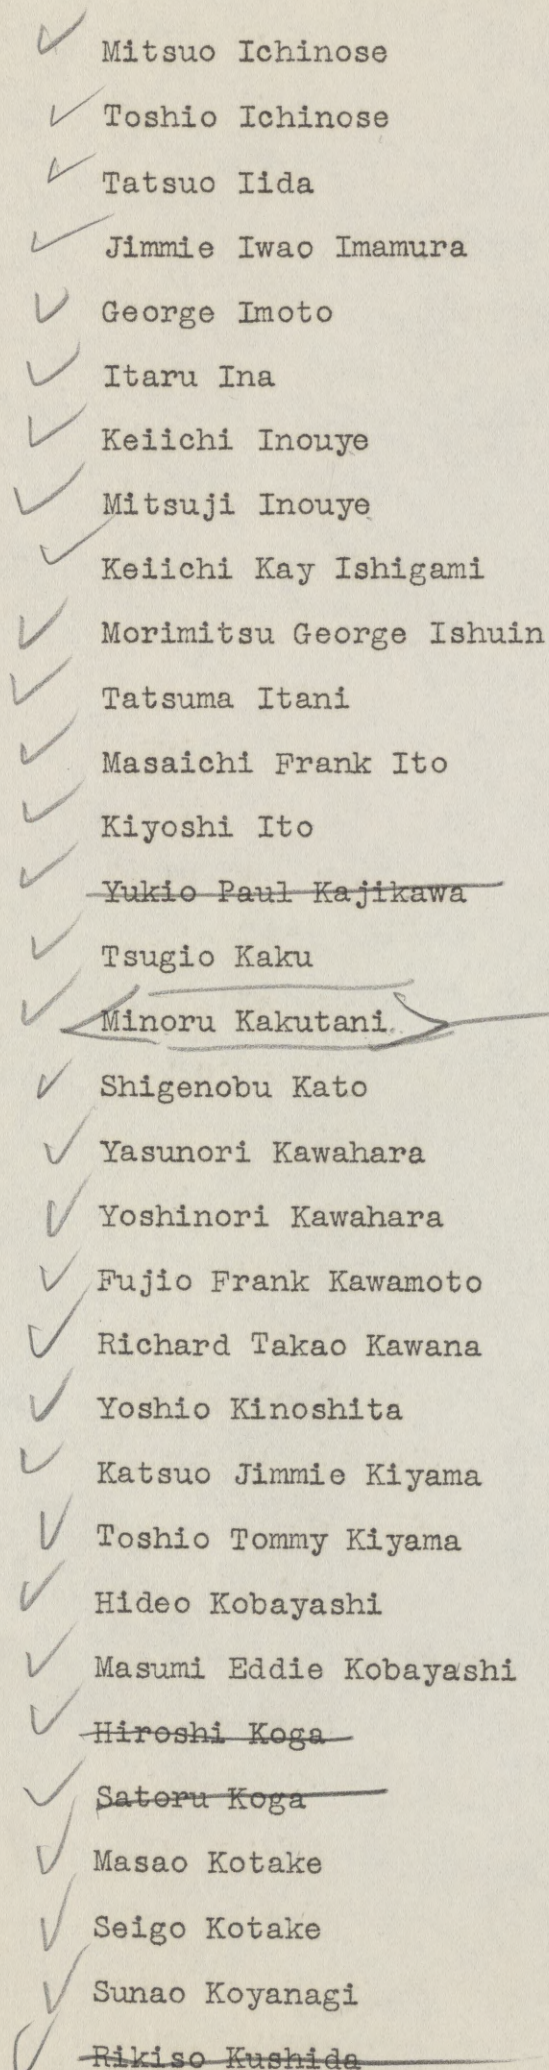 Mitsuo Ichinose
Toshio Ichinose
Tatsuo Iida
Jimmie Iwao Imamura
George Imoto
Itaru Ina
Keiichi Inouye
Mitsuji Inouye
Keiichi Kay Ishigami
Morimitsu George Ishuin
Tatsuma Itani
Masaichi Frank Ito
Kiyoshi Ito
Yukio Paul Kajikawa
Tsugio Kaku
Minoru Kakutani
Shigenobu Kato
Yasunori Kawahara
Yoshinori Kawahara
Fujio Frank Kawamoto
Richard Takao Kawana
Yoshio Kinoshita
Katsuo Jimmie Kiyama
Toshio Tommy Kiyama
Hideo Kobayashi
Masumi Eddie Kobayashi
Hiroshi Koga
Satoru Koga
Masao Kotake
Seigo Kotake
Sunao Koyanagi
Rikiso Kushida